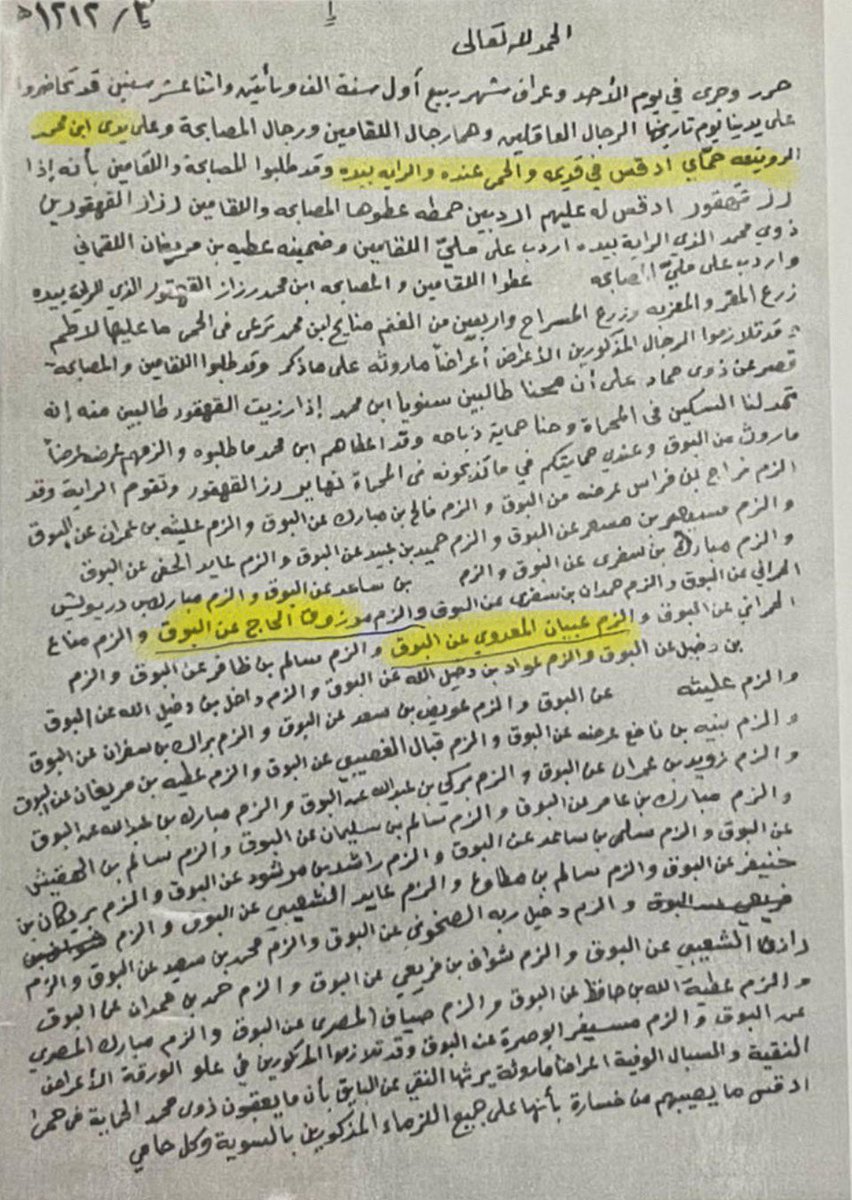 ٣/ ١٢١٢ه
الحمد لله تعالى
حرر وجرى في يوم الأحد وعراف شهر ربيع أول سنة الف ومأتين واثنا عشر سنين قد تحاضروا
على يدينا يوم تاريخها الرجال العاقلين وهما رجال اللقامين ورجال المصابحة وعلى يدى ابن محمد
الرويثعه حمّاي ادقس في قديمه والحمى عنده والرايه بيده وقد طلبوا المصابحة واللقامين بأنه إذا
رز القهقور ادقس له عليهم اردبين حمطه عطوها المصابحه واللقامين رزاز القهقورين
ذوي محمد الذى الراية بيده اردب على مليّ اللقامين وضمينه عطيه بن مريغان اللقماني
واردب على مليّ المصابحه عطوا اللقامين والمصابحه ابن محمد رزاز القهقور الذي للراية بيده
زرع المقر والمعزبه وزرع المسراح واربعين من الغنم منايح لبن محمد ترعى في الحمى ما عليها لاطم
قد تلازموا الرجال المذكورين الأعراض أعراضاً ماروثه على ماذكر وقد طلبوا اللقامين والمصابحه
قصر عن ذوى حماد على أن صحنا طالبين سنويا ابن محمد إذا رزيت القهقور طالبين منه إنه
تمد لنا السكين في المجراة وحنا حماية ذباحه وقد اعطاهم ابن محمد ما طلبوه والزمهم عرضه عرضاً
ماروث من البوق وعندي حمايتكم في ما تذبحونه في المجراة نهاير رز القهقور وتقوم الراية وقد
الزم فراج بن فراس عرضه من البوق والزم فالح بن مبارك عن البوق والزم عليثه بن عمران عن البوق
والزم مسيعر بن مسعر عن البوق والزم حميد بن عبيد عن البوق والزم عايد الحفى عن البوق
والزم مبارك بن سفرى عن البوق والزم بن ساعد عن البوق والزم مبارك بن درويش
المراني عن البوق والزم حمدان بن سفرى عن البوق والزم مرزوق الحاج عن البوق والزم مناع
الحمراني عن البوق والزم عبيان المعدوي عن البوق والزم سالم بن ظافر عن البوق والزم
بن دخيل عن البوق والزم عواد بن دخيل الله عن البوق والزم داخل بن دخيل الله عن البوق
والزم عليثه عن البوق والزم عويض بن سعد عن البوق والزم براك بن سفران عن البوق
والزم بنيه بن نافع عرضه عن البوق والزم قبال الغصيبي عن البوق والزم عطيه بن مريغان عن البوق
والزم زويد بن عمران عن البوق والزم بركي بن عبدالله عن البوق والزم مبارك بن عبدالله عن البوق
والزم مبارك بن عامر عن البوق والزم سالم بن سليمان عن البوق والزم سالم بن الهقيش
عن البوق والزم سلمى بن ساعد عن البوق والزم راشد بن مرشود عن البوق والزم بريكان بن
خنيفر عن البوق والزم سالم بن مطاوع والزم عايد الشعيبي عن البوق والزم
والزم دخيل ربه الصخوني عن البوق والزم محمد بن سعيد عن البوق والزم
رازق الشعيبي عن البوق والزم شواف بن فريعي عن البوق والزم حمد بن حمدان عن البوق
والزم عطية الله بن حافظ عن البوق والزم ضياف المصري عن البوق والزم مبارك المصري
عن البوق والزم مسيفر ابو صرة عن البوق وقد تلازموا المذكورين في علو الورقة الأعراض
النقية والسبال الوفية اعراضا ماروثة يرثها النقي عن البايق بأن ما يعقبون ذوى محمد الحماية في حمى
ادقس ما يصيبهم من خسارة بأنها على جميع اللزماء المذكورين بالسوية وكل حامي